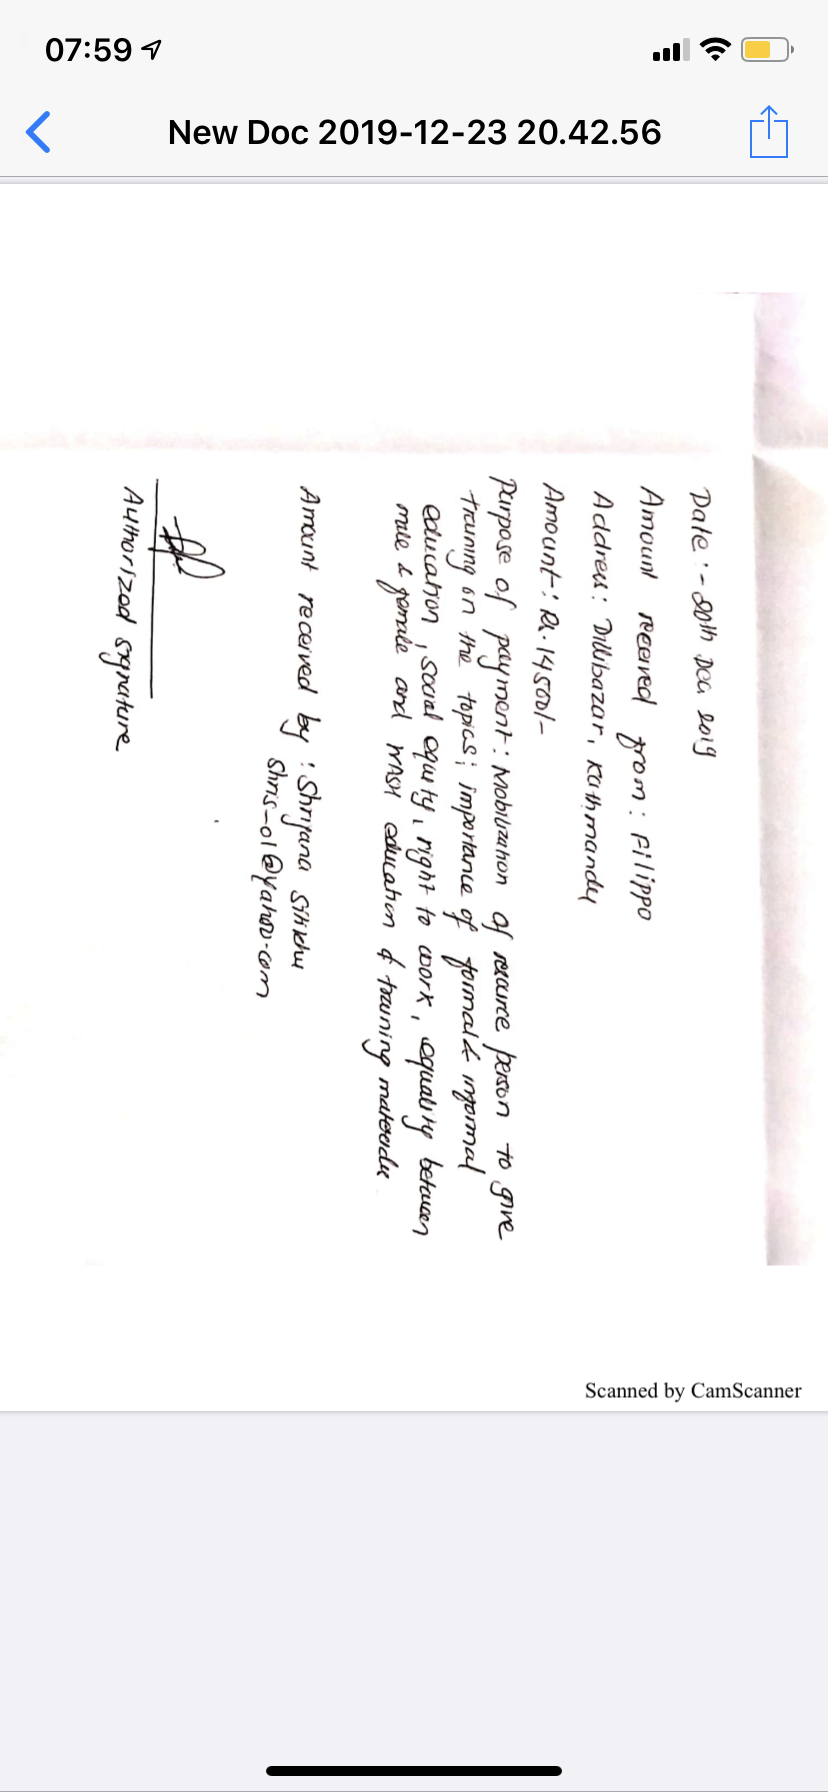 07:59
New Doc 2019-12-23 20.42.56
Date :- 20th Dec 2019
Amount received from : Filippo
Address : Dillibazar, Kathmandu
Amount : Rs. 14500/-
Purpose of payment : Mobilization of resource person to give
training on the topics; importance of formal & informal
education, social equity, right to work, equality between
male & female and WASH education & training materials
Amount received by : Shrijana
Shris_01@yahoo.com
Authorized signature
Scanned by CamScanner